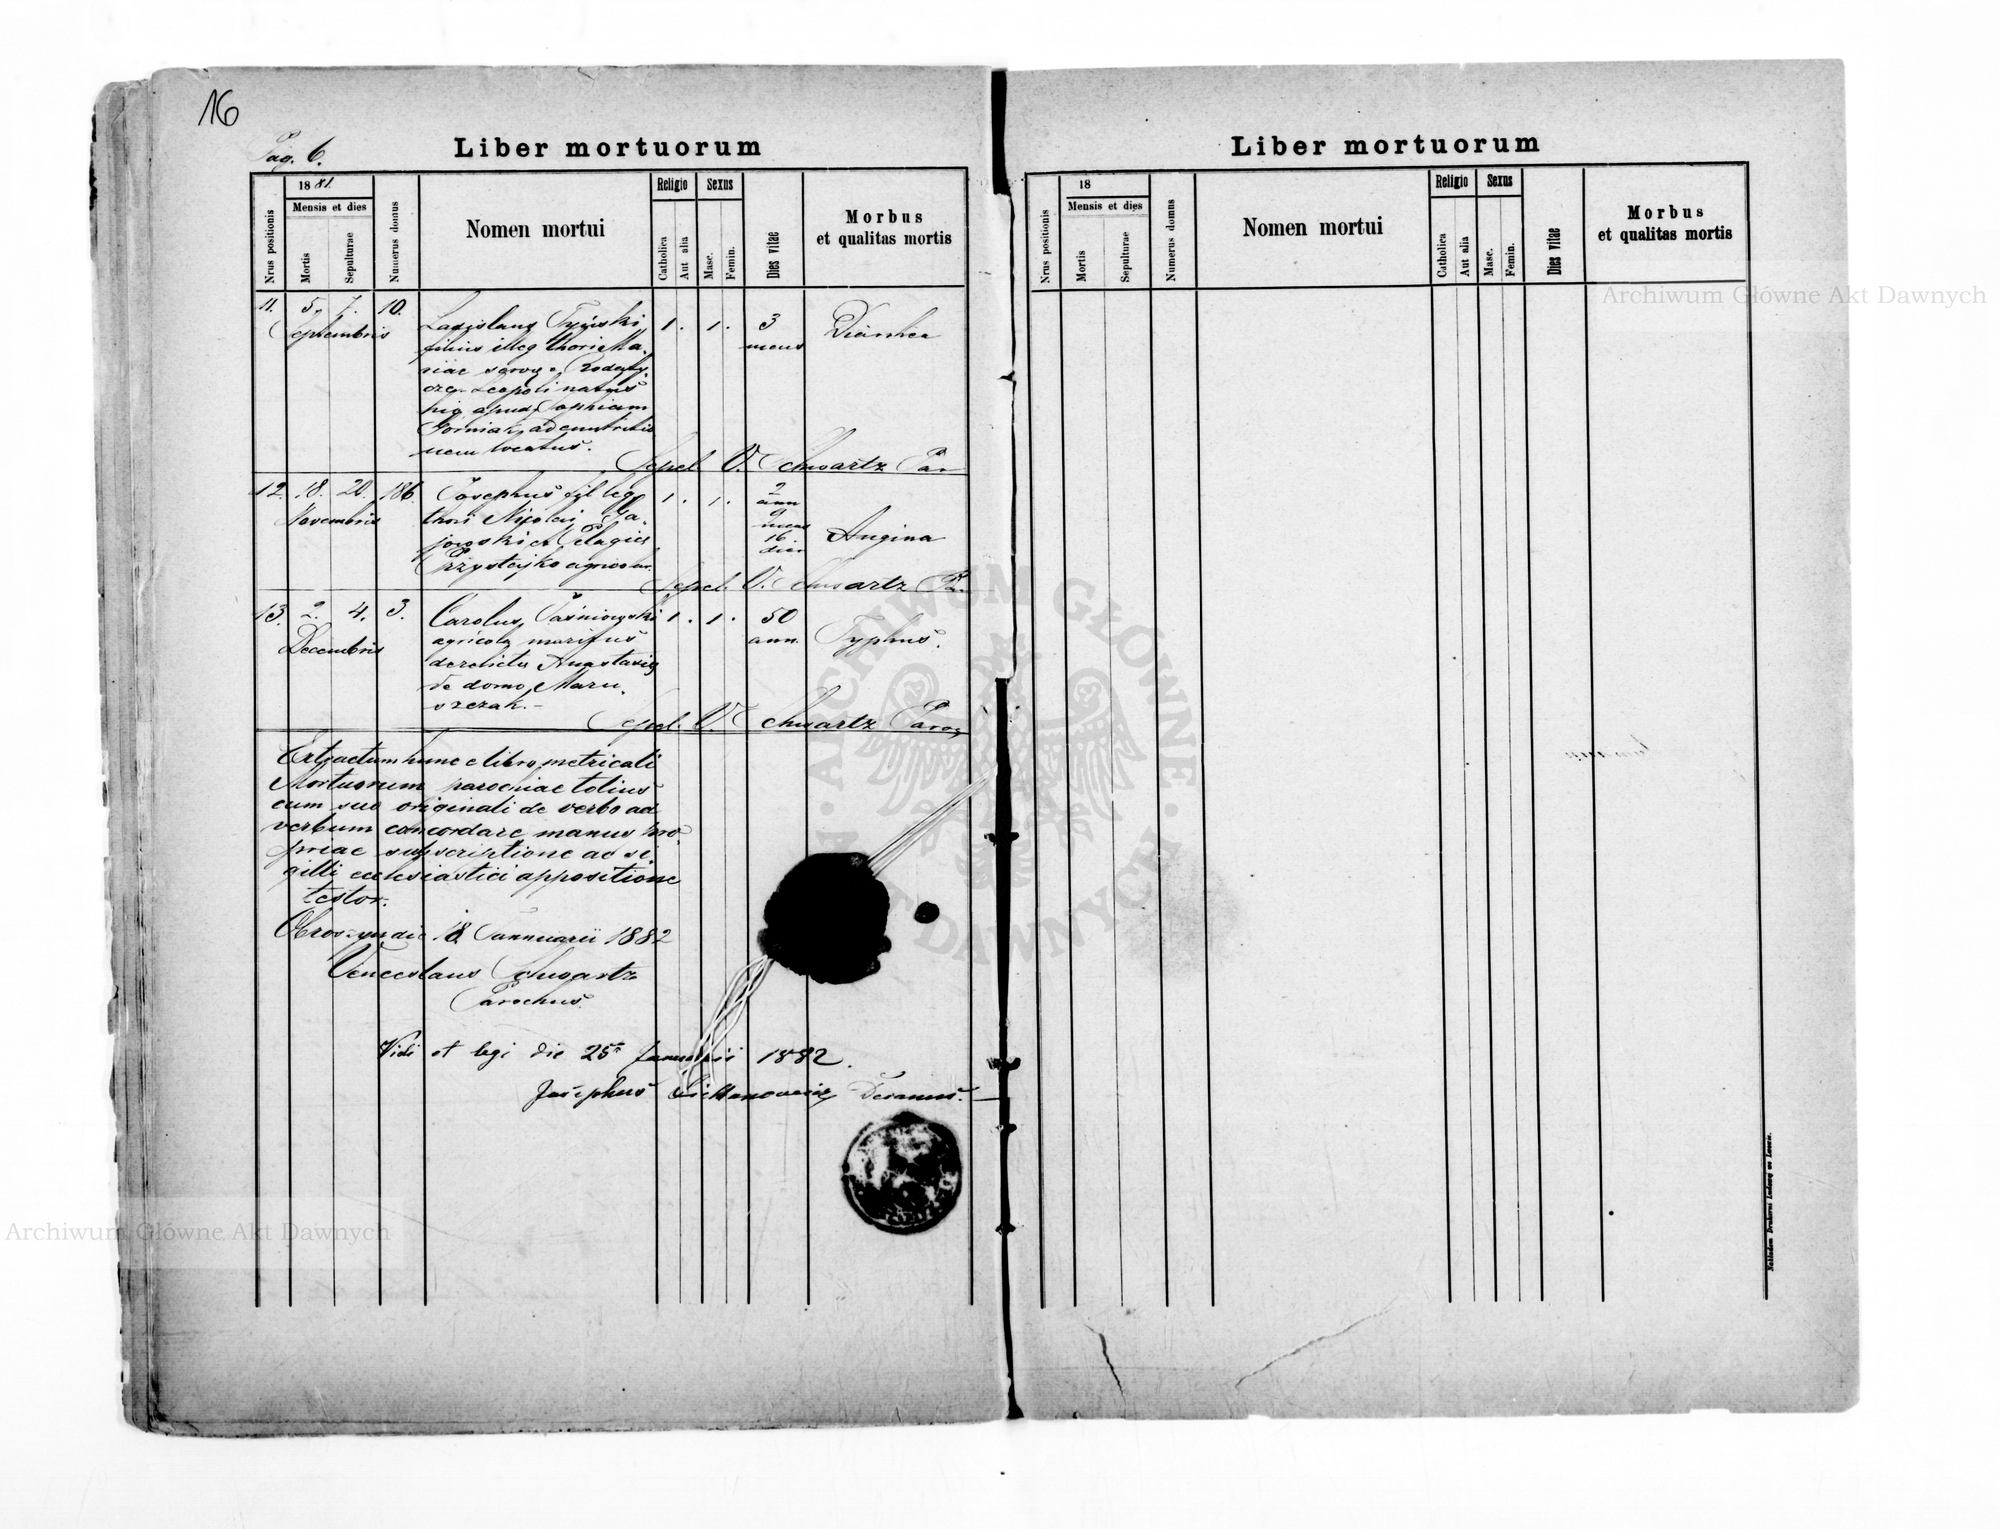 16
Pag. 6.
Liber mortuorum
Nrus positionis
1881.
Mensis et dies
Mortis
Sepulturae
Numerus domus
Nomen mortui
Religio
Catholica
Aut alia
Sexus
Masc.
Femin.
Dies vitae
Morbus
et qualitas mortis
11. 5. 7. 10.
Septembris
Ladislaus
filius illeg thori Ma-
riae
Leopoli natus
hic apud Sophiam
Gorniak ad enutritio
nem locatus.
1. 1.
3
mens
Diarrhea
Sepel V. Schwartz Par
12. 18. 20. 186.
Novembris
Josephus fil leg
thori Nicolai Ga-
jowski et Pelagia
Przystajko agricolar.
1. 1.
2
ann
9
mens
16
dier
Angina
Sepel. V. Schwartz Pa.
13. 2. 4. 3.
Decembris
Carolus Jaśniowski
agricola maritus
derelicta Anastasia
de domo Maru-
szczak.-
1. 1.
50
ann.
Typhus.
Sepel. V. Schwartz Paro
Extractum hunc e libro metricali
Mortuorum parochiae tolius
cum suo originali de verbo ad
verbum concordare manus pro-
priae subscriptione ac si-
gilli ecclesiastici appositione
testor.
Obroszyn die 18. Januarii 1882
Venceslaus Schwartz
Parochus
Vidi et legi die 25 Januarii 1882.
Josephus Decanus.
Liber mortuorum
Nrus positionis
18
Mensis et dies
Mortis
Sepulturae
Numerus domus
Nomen mortui
Religio
Catholica
Aut alia
Sexus
Masc.
Femin.
Dies vitae
Morbus
et qualitas mortis
Nakładem Drukarni Ludowej we Lwowie.
Archiwum Główne Akt Dawnych
ARCHIWUM GŁÓWNE AKT DAWNYCH
Archiwum Główne Akt Dawnych